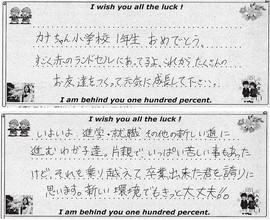 I wish you all the luck !
カナちゃん小学校1年生 おめでとう、
ずごく赤のランドセルにあってるよ、これからたくさんの
お友達をつくって元気に成長して下さい。
I am behind you one hundred percent.
I wish you all the luck !
いよいよ 進学・就職 その他の新しい道に
進むわが子達。片親で いっぱい苦しい事もあった
けど、それを乗り越えて 卒業出来た君を誇りに
思います。新しい環境でもきっと大丈夫!!
I am behind you one hundred percent.